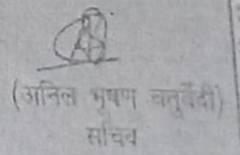 (अनिल भूषण चतुर्वेदी)
सचिव